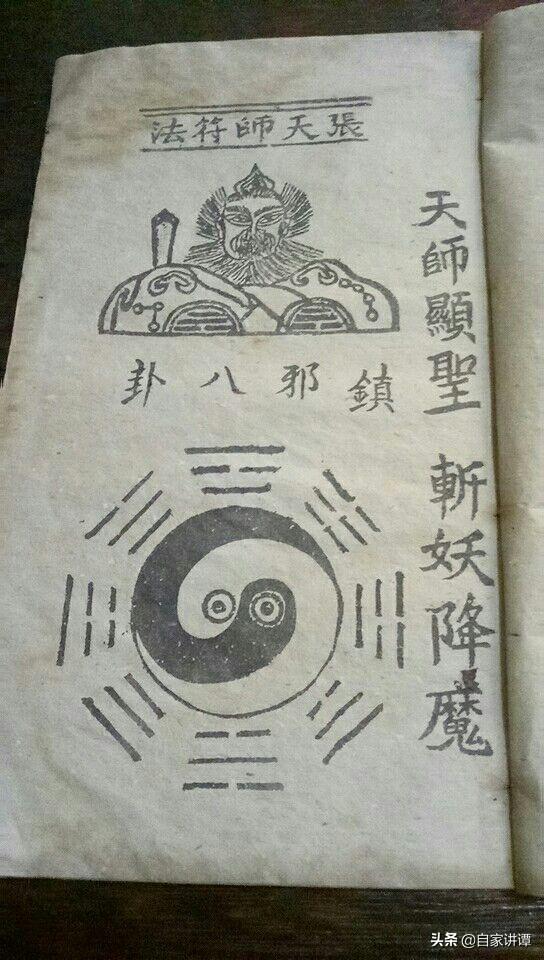 張天師符法
天師顯聖 斬妖降魔
鎮邪八卦
头条 @自家讲谭